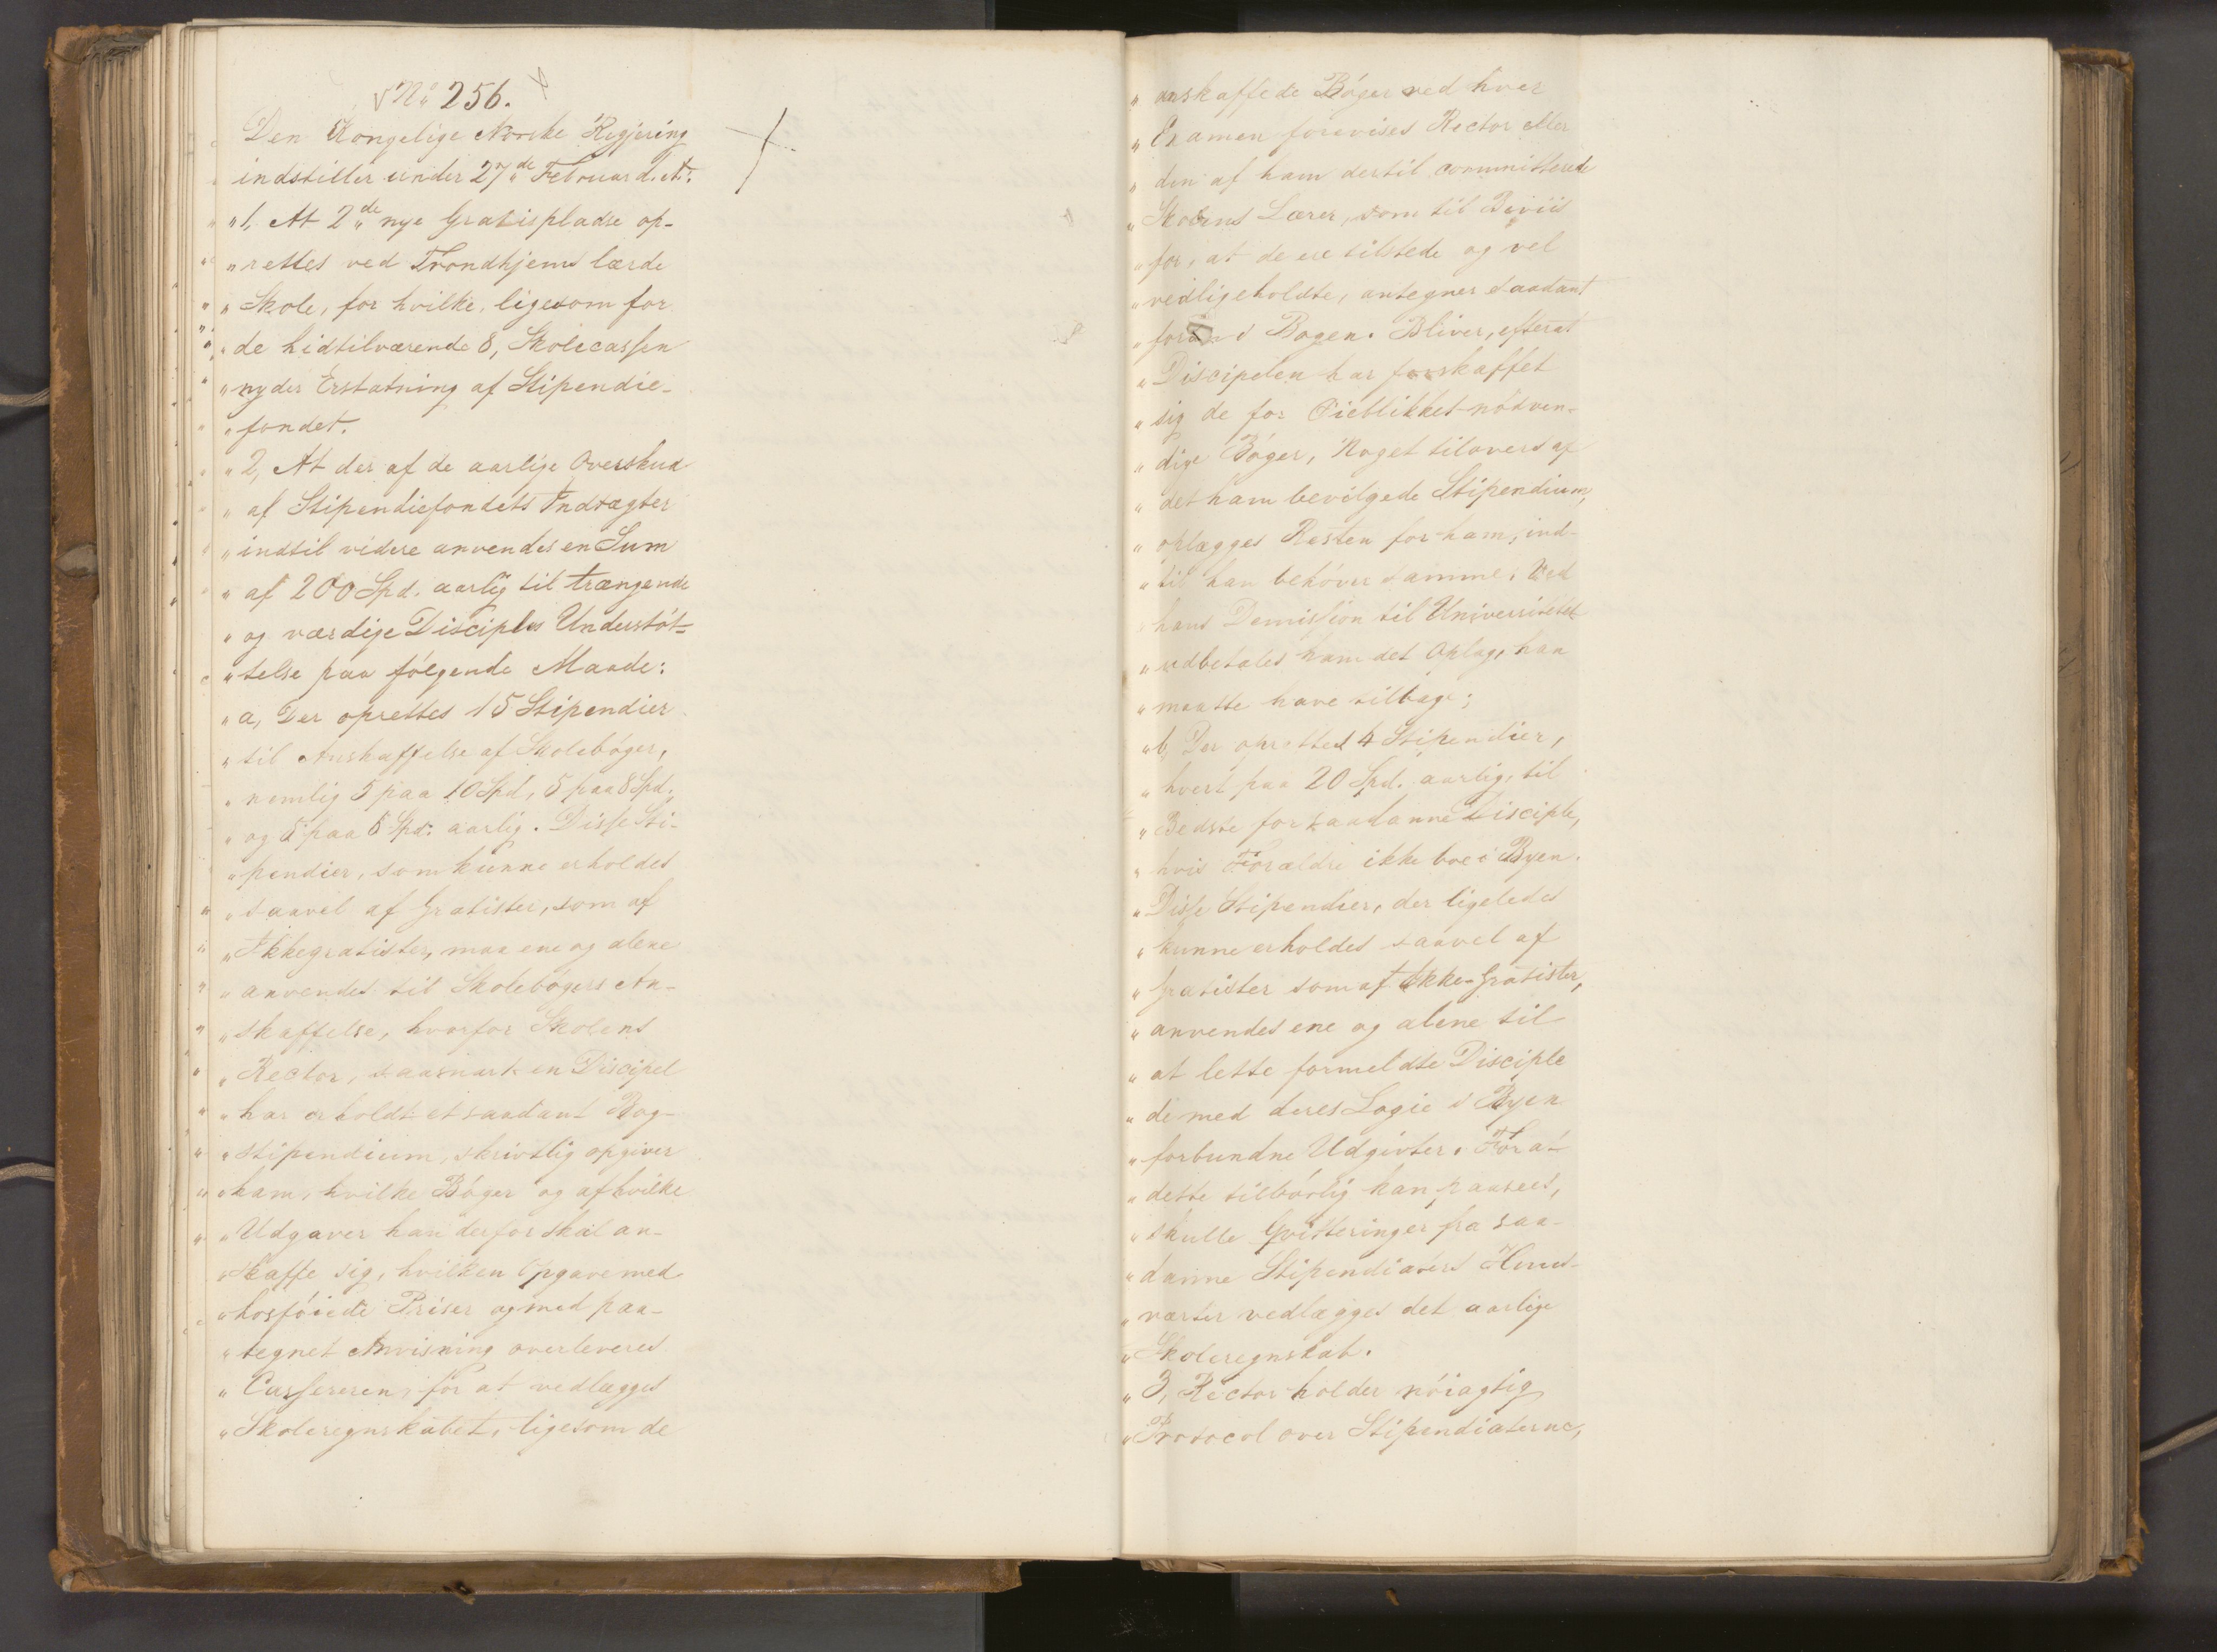 No 256.
Den Kongelige Norske Regjering
indstiller under 27de Februar d. A.:
"1, At 2de nye Gratispladse op-
"rettes ved Trondhjems lærde
"Skole, for hvilke, ligesom for
"de hidtilværende 8, Skolecassen
"nyder Erstatning af Stipendie-
"fondet.
"2, At der af de aarlige Overskud
"af Stipendiefondets Indtægter
"indtil videre anvendes en Sum
"af 200 Spd. aarlig til trængende
"og værdige Disciples Understöt-
"telse paa fölgende Maade:
"a, Der oprettes 15 Stipendier
"til Anskaffelse af Skoleböger,
"nemlig 5 paa 10 Spd, 5 paa 8 Spd.
"og 5 paa 6 Spd: aarlig. Disse Sti-
"pendier, som kunne erholdes
"saavel af Gratister, som af
"Ikkegratister, maa ene og alene
"anvendes til Skolebögers An-
"skaffelse, hvorfor Skolens
"Rector, saasnart en Discipel
"har erholdt et saadant Bog-
"stipendium, skrivtlig opgiver
"ham, hvilke Böger og af hvilke
"Udgaver han derfor skal an-
"skaffe sig, hvilken Opgave med
"hosföiede Priser og med paa-
"tegnet Anvisning overleveres
"Cassereren, for at vedlægges
"Skoleregnskabet, ligesom de
"anskaffede Böger ved hver
"Examen forevises Rector eller
"den af ham dertil committerede
"Skolens Lærer, som til Beviis
"for, at de ere tilstede og vel
"vedligeholdte, antegner saadant
"foran i Bogen. Bliver, efterat
"Discipelen har forskaffet
"sig de for Öieblikket nödven-
"dige Böger, Noget tilovers af
"det ham bevilgede Stipendium,
"oplægges Resten for ham, ind-
"til han behöver samme. Ved
"hans Demission til Universitetet
"udbetales ham det Oplag, han
"maatte have tilbage;
"b, Der oprettes 4 Stipendier,
"hvert paa 20 Spd. aarlig, til
"Bedste for saadanne Disciple,
"hvis Forældre ikke boe i Byen.
"Disse Stipendier, der ligeledes
"kunne erholdes saavel af
"Gratister som af Ikke-Gratister,
"anvendes ene og alene til
"at lette formeldte Disciple
"de med deres Logie i Byen
"forbundne Udgivter. For at
"dette tilbörlig kan paasees,
"skulle Qvitteringer fra saa-
"danne Stipendiaters Huus-
"værter vedlægges det aarlige
"Skoleregnskab.
"3, Rector holder nöiagtig
"Protocol over Stipendiaterne,